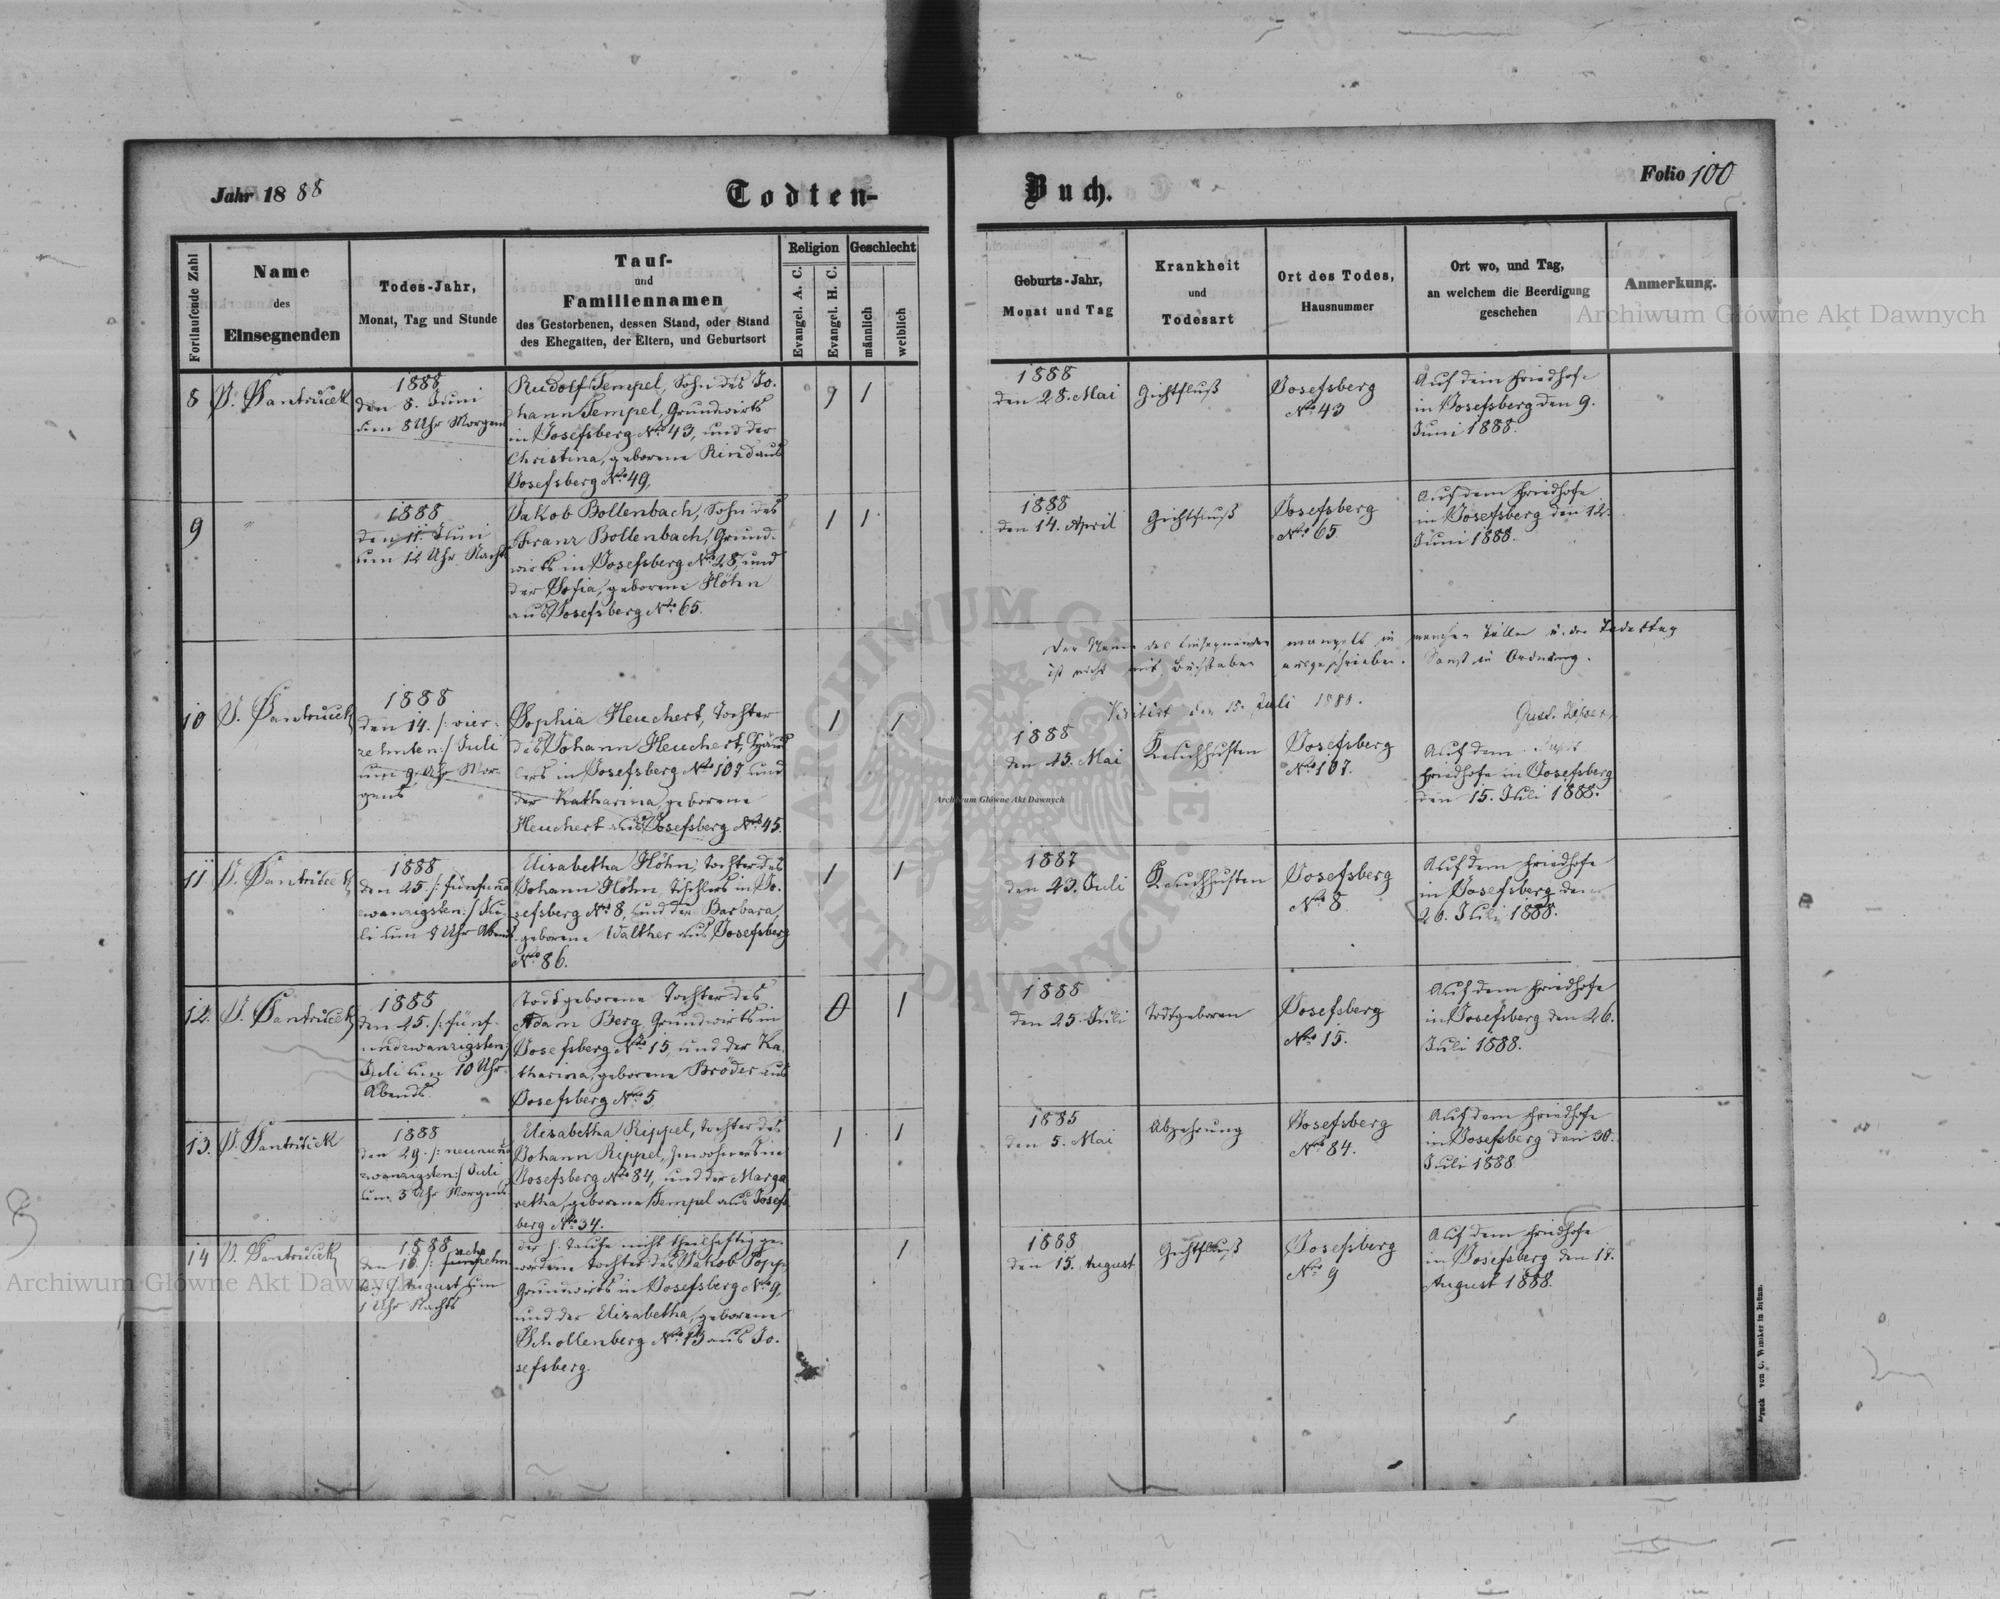 Jahr 1888
Todten-
Buch.
Folio 100
Fortlaufende Zahl
Name
des
Einsegnenden
Todes-Jahr,
Monat, Tag und Stunde
Tauf-
und
Familiennamen
des Gestorbenen, dessen Stand, oder Stand
des Ehegatten, der Eltern, und Geburtsort
Religion
Evangel. A. C.
Evangel. H. C.
Geschlecht
männlich
weiblich
Geburts-Jahr,
Monat und Tag
Krankheit
und
Todesart
Ort des Todes,
Hausnummer
Ort wo, und Tag,
an welchem die Beerdigung
geschehen
Anmerkung.
8
1888
den 8. Juni
um 8 Uhr Morgens
Rudolf Tempel, Sohn des Jo-
hann Tempel, Grundwirts
in Josefsberg No 43, und der
Christina, geborene Rind aus
Josefsberg No 49.
1
1
1888
den 28. Mai
Gichtfluß
Josefsberg
No 43
Auf dem Friedhofe
in Josefsberg den 9.
Juni 1888.
9
"
1888
den 11. Juni
um 12 Uhr Nachts
Jakob Bollenbach, Sohn des
Franz Bollenbach, Grund-
wirts in Josefsberg No 28, und
der Sofia, geborene Höhn
aus Josefsberg No 65.
1
1
1888
den 14. April
Gichtfluß
Josefsberg
No 65
Auf dem Friedhofe
in Josefsberg den 12.
Juni 1888.
Der Name des Einsegnenden mangelt in manchen Fällen u. der Todestag
ist nicht mit Buchstaben ausgeschrieben. Sonst in Ordnung.
Visitirt den 15. Juli 1888.
10
1888
den 14. /: vier-
zehnten :/ Juli
um 9 Uhr Mor-
gens
Sophia Heuchert, Tochter
des Johann Heuchert,
in Josefsberg No 107 und
der Katharina, geborene
Heuchert aus Josefsberg No 45.
1
1
1888
den 25. Mai
Keuchhusten
Josefsberg
No 107.
Auf dem
Friedhofe in Josefsberg
den 15. Juli 1888.
11
1888
den 25. /: fünfund
zwanzigsten :/ Ju-
li um 9 Uhr Abends
Elisabetha Höhn, Tochter des
Johann Höhn, Tischlers in Jo-
sefsberg No 8, und der Barbara,
geborene Walther aus Josefsberg
No 86.
1
1
1887
den 23. Juli
Keuchhusten
Josefsberg
No 8
Auf dem Friedhofe
in Josefsberg den
26. Juli 1888.
12.
1888
den 25. /: fünf-
undzwanzigsten :/
Juli um 10 Uhr
Abends.
Todtgeborene Tochter des
Adam Berg, Grundwirts in
Josefsberg No 15, und der Ka-
tharina, geborene Bröder aus
Josefsberg No 5
1
1888
den 25. Juli
Todtgeboren
Josefsberg
No 15.
Auf dem Friedhofe
in Josefsberg den 26.
Juli 1888.
13.
1888
den 29. /: neunund
zwanzigsten :/ Juli
um 5 Uhr Morgens
Elisabetha Rippel, Tochter des
Johann Rippel, Inwohners in
Josefsberg No 84, und der Marga
retha, geborene Tempel aus Josefs
berg No 34.
1
1
1885
den 5. Mai
Abzehrung
Josefsberg
No 84.
Auf dem Friedhofe
in Josefsberg den 30.
Juli 1888
14
1888
August um
1 Uhr Nachts
der h. Taufe nicht theilhaftig ge-
wordene Tochter des Jakob Popp
Grundwirts in Josefsberg No 9,
und der Elisabetha, geborene
Schollenberg No 13 aus Jo-
sefsberg.
1
1888
den 15. August
Gichtfluß
Josefsberg
No 9
Auf dem Friedhofe
in Josefsberg den 17.
August 1888.
Druck von C. Winiker in Brünn.
Archiwum Główne Akt Dawnych
Archiwum Główne Akt Dawnych
Archiwum Główne Akt Dawnych
ARCHIWUM GŁÓWNE AKT DAWNYCH